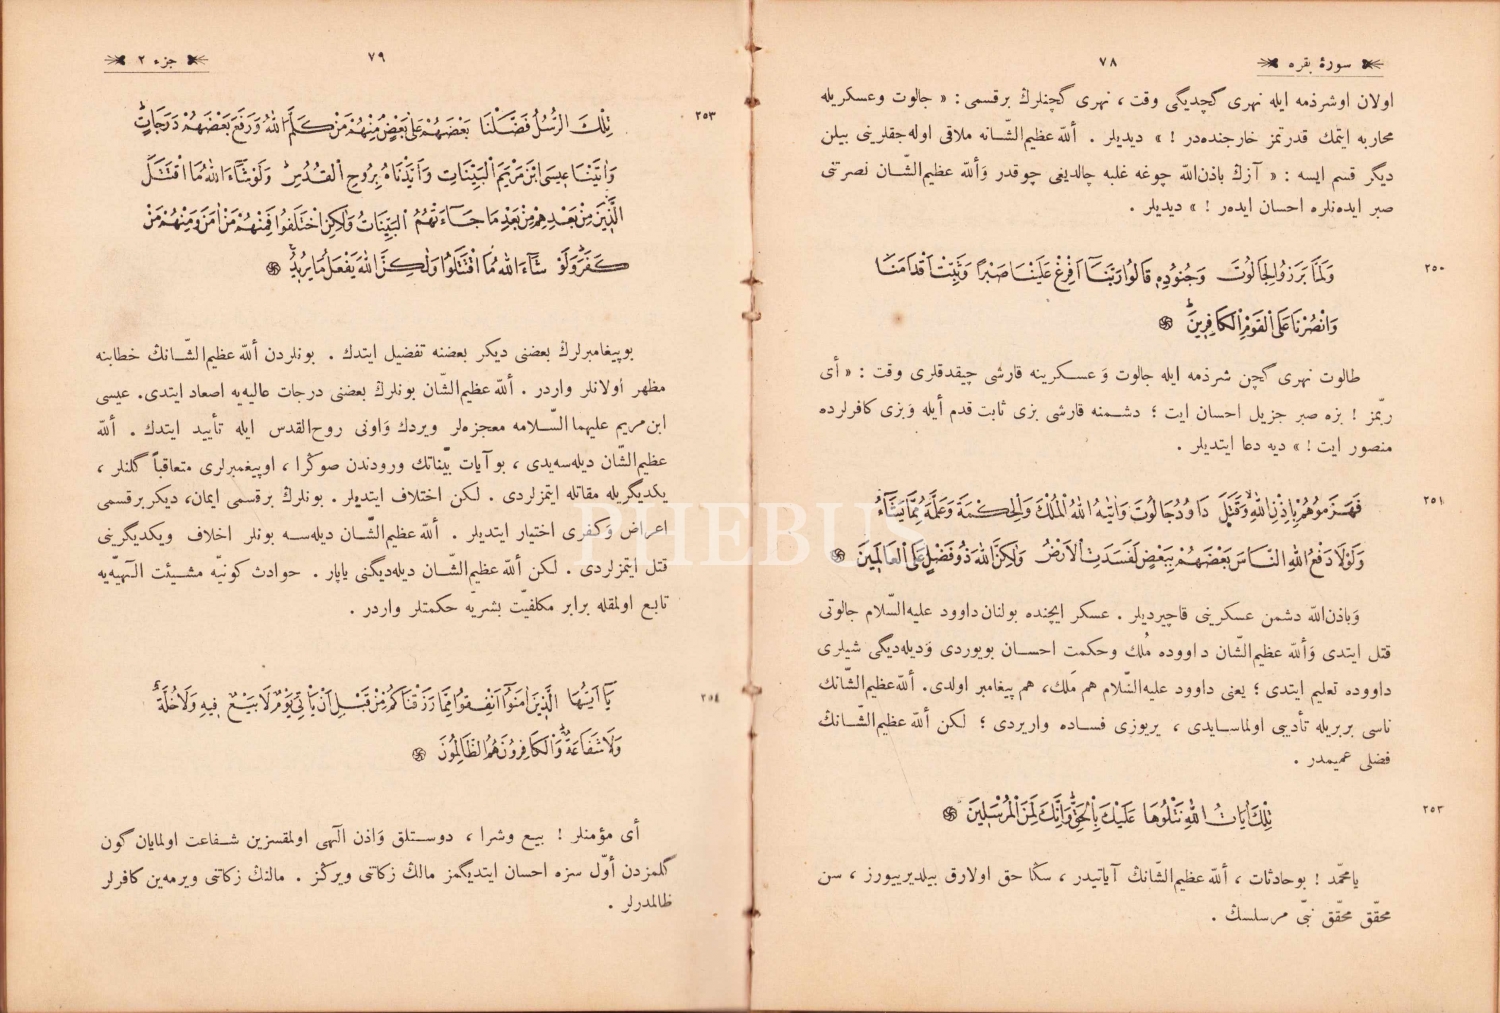 سورهٔ بقره
٧٨
اولان اوشرذمه ايله نهرى گچديگى وقت ، نهرى گچنلرڭ برقسمى : « جالوت وعسكريله
محاربه ايتمك قدرتمز خارجنده‌در ! » ديديلر . اللّه عظيم‌الشّانه ملاقى اوله‌جقلرينى بيلن
ديگر قسم ايسه : « آزڭ باذن‌اللّه چوغه غلبه چالديغى چوقدر وَاللّه عظيم‌الشّان نصرتنى
صبر ايده‌نلره احسان ايده‌ر ! » ديديلر .
٢٥٠
وَلَمَّا بَرَزُوا لِجَالُوتَ وَجُنُودِهِ قَالُوا رَبَّنَا اَفْرِغْ عَلَيْنَا صَبْرًا وَثَبِّتْ اَقْدَامَنَا
وَانْصُرْنَا عَلَى الْقَوْمِ الْكَافِرِينَ
طالوت نهرى گچن شرذمه ايله جالوت وَ عسكرينه قارشى چيقدقلرى وقت : « أى
ربّمز ! بزه صبر جزيل احسان ايت ؛ دشمنه قارشى بزى ثابت قدم أيله وَبزى كافرلرده
منصور ايت ! » ديه دعا ايتديلر .
٢٥١
فَهَزَمُوهُمْ بِاِذْنِ اللّٰهِ وَقَتَلَ دَاوُدُ جَالُوتَ وَاٰتٰيهُ اللّٰهُ الْمُلْكَ وَالْحِكْمَةَ وَعَلَّمَهُ مِمَّا يَشَآءُ
وَلَوْلَا دَفْعُ اللّٰهِ النَّاسَ بَعْضَهُمْ بِبَعْضٍ لَفَسَدَتِ الْاَرْضُ وَلٰكِنَّ اللّٰهَ ذُو فَضْلٍ عَلَى الْعَالَمِينَ
وَباذن‌اللّه دشمن عسكرينى قاچيرديلر . عسكر ايچنده بولنان داوود عليه‌السّلام جالوتى
قتل ايتدى وَاللّه عظيم‌الشّان داووده مُلك وحكمت احسان بويوردى وَديله‌ديگى شيلرى
داووده تعليم ايتدى ؛ يعنى داوود عليه‌السّلام هم مَلك، هم پيغامبر اولدى. اللّه عظيم‌الشّانڭ
ناسى بربريله تأديبى اولماسايدى ، يريوزى فساده واريردى ؛ لكن اللّه عظيم‌الشّانڭ
فضلى عميمدر .
٢٥٣
تِلْكَ اٰيَاتُ اللّٰهِ نَتْلُوهَا عَلَيْكَ بِالْحَقِّ وَاِنَّكَ لَمِنَ الْمُرْسَلِينَ
يا محمّد ! بوحادثات ، اللّه عظيم‌الشّانڭ آياتيدر ، سڭا حق اولارق بيلديرييورز ، سن
محقّق محقّق نبىّ مرسلسڭ .
جزء ٢
٧٩
٢٥٣
تِلْكَ الرُّسُلُ فَضَّلْنَا بَعْضَهُمْ عَلٰى بَعْضٍ مِنْهُمْ مَنْ كَلَّمَ اللّٰهُ وَرَفَعَ بَعْضَهُمْ دَرَجَاتٍ
وَاٰتَيْنَا عِيسَى ابْنَ مَرْيَمَ الْبَيِّنَاتِ وَاَيَّدْنَاهُ بِرُوحِ الْقُدُسِ وَلَوْ شَآءَ اللّٰهُ مَا اقْتَتَلَ
الَّذِينَ مِنْ بَعْدِهِمْ مِنْ بَعْدِ مَا جَآءَتْهُمُ الْبَيِّنَاتُ وَلٰكِنِ اخْتَلَفُوا فَمِنْهُمْ مَنْ اٰمَنَ وَمِنْهُمْ مَنْ
كَفَرَ وَلَوْ شَآءَ اللّٰهُ مَا اقْتَتَلُوا وَلٰكِنَّ اللّٰهَ يَفْعَلُ مَا يُرِيدُ
بوپيغامبرلرڭ بعضنى ديكر بعضنه تفضيل ايتدك . بونلردن اللّه عظيم‌الشّانڭ خطابنه
مظهر اولانلر واردر . اللّه عظيم‌الشّان بونلرڭ بعضنى درجات عاليه‌يه اصعاد ايتدى. عيسى
ابن‌مريم عليهما السّلامه معجزه‌لر ويردك وَاونى روح‌القدس ايله تأييد ايتدك . اللّه
عظيم‌الشّان ديله‌سه‌يدى ، بوآيات بيّناتك ورودندن صوڭرا ، اوپيغمبرلرى متعاقباً گلنلر ،
يكديگريله مقاتله ايتمزلردى . لكن اختلاف ايتديلر . بونلرڭ برقسمى ايمان، ديكر برقسمى
اعراض وَكفرى اختيار ايتديلر . اللّه عظيم‌الشّان ديله‌سه بونلر اخلاف ويكديگرينى
قتل ايتمزلردى . لكن اللّه عظيم‌الشّان ديله‌ديگنى ياپار . حوادث كونيّه مشيئت الٓهيّه‌يه
تابع اولمقله برابر مكلفيّت بشريّه حكمتلر واردر .
٢٥٤
يَآ اَيُّهَا الَّذِينَ اٰمَنُوا اَنْفِقُوا مِمَّا رَزَقْنَاكُمْ مِنْ قَبْلِ اَنْ يَاْتِىَ يَوْمٌ لَا بَيْعٌ فِيهِ وَلَا خُلَّةٌ
وَلَا شَفَاعَةٌ وَالْكَافِرُونَ هُمُ الظَّالِمُونَ
أى مؤمنلر ! بيع وشرا ، دوستلق وَاذن الٓهى اولمقسزين شفاعت اولمايان گون
گلمزدن أوّل سزه احسان ايتديگمز مالڭ زكاتنى ويرڭز . مالنڭ زكاتنى ويرمه‌ين كافرلر
ظالمدرلر .
PHEBUS